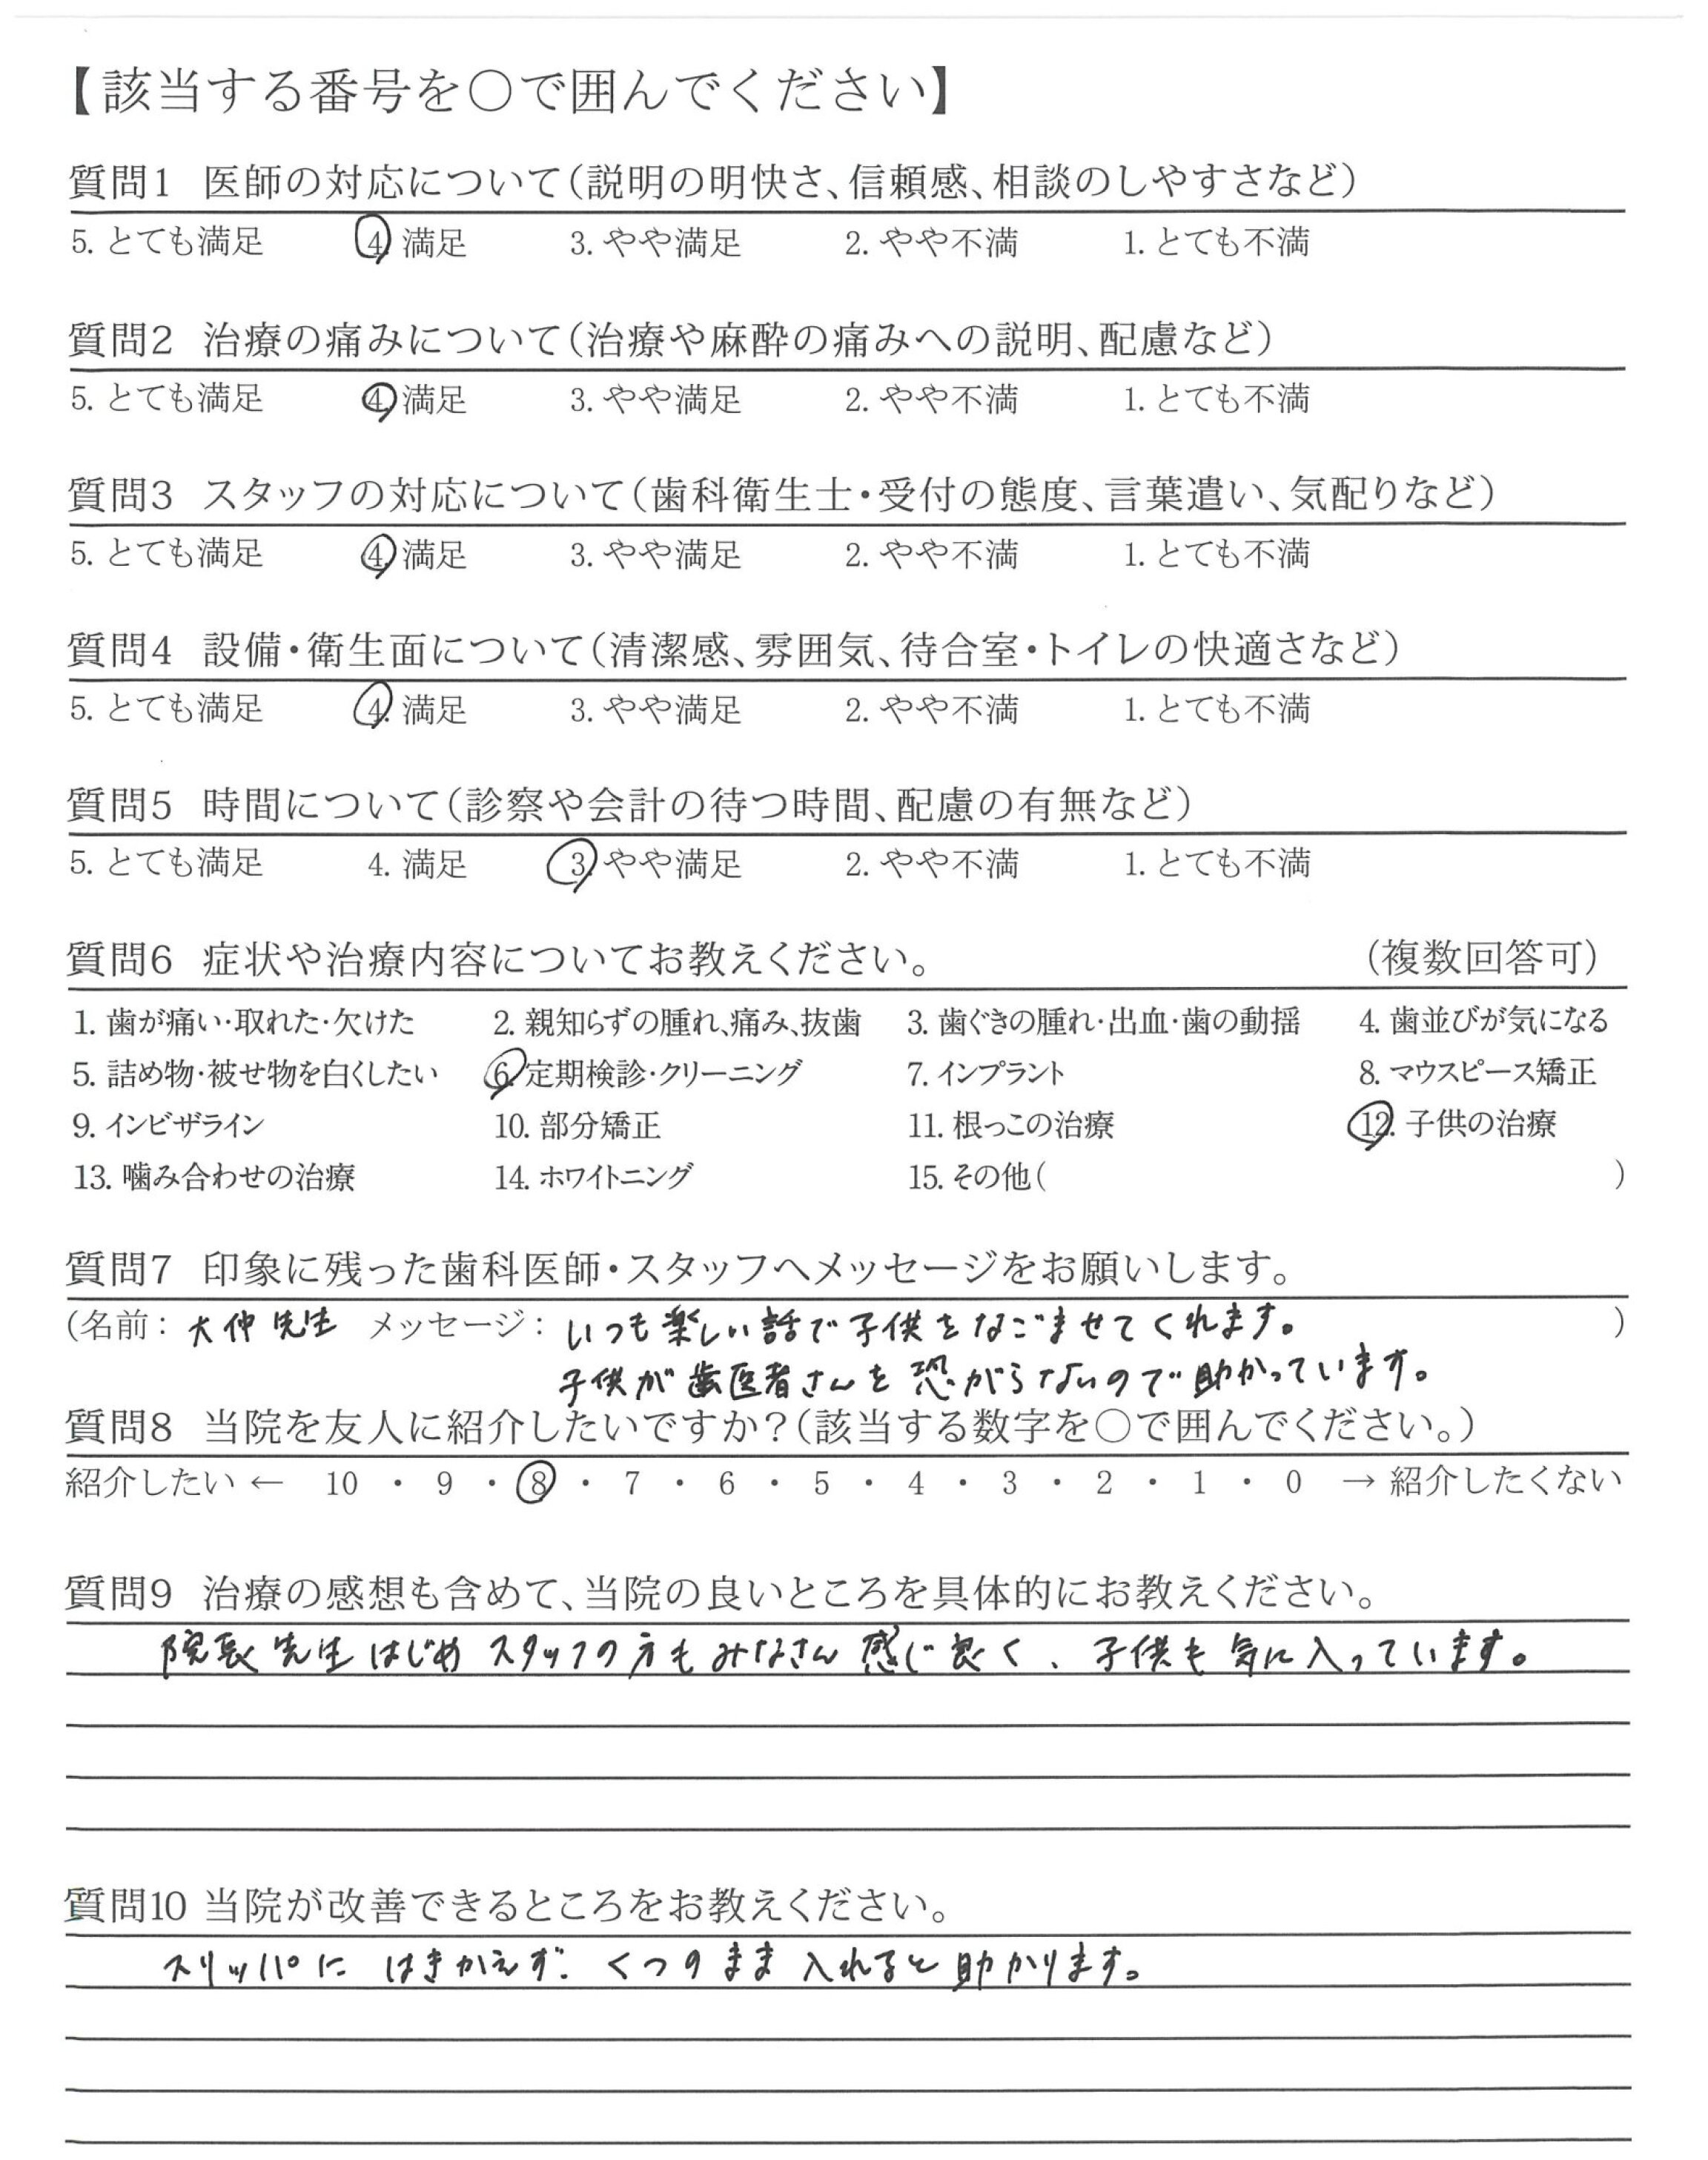 【該当する番号を○で囲んでください】
質問1 医師の対応について(説明の明快さ、信頼感、相談のしやすさなど)
5. とても満足 4. 満足 3. やや満足 2. やや不満 1. とても不満
質問2 治療の痛みについて(治療や麻酔の痛みへの説明、配慮など)
5. とても満足 4. 満足 3. やや満足 2. やや不満 1. とても不満
質問3 スタッフの対応について(歯科衛生士・受付の態度、言葉遣い、気配りなど)
5. とても満足 4. 満足 3. やや満足 2. やや不満 1. とても不満
質問4 設備・衛生面について(清潔感、雰囲気、待合室・トイレの快適さなど)
5. とても満足 4. 満足 3. やや満足 2. やや不満 1. とても不満
質問5 時間について(診察や会計の待つ時間、配慮の有無など)
5. とても満足 4. 満足 3. やや満足 2. やや不満 1. とても不満
質問6 症状や治療内容についてお教えください。 (複数回答可)
1. 歯が痛い・取れた・欠けた 2. 親知らずの腫れ、痛み、抜歯 3. 歯ぐきの腫れ・出血・歯の動揺 4. 歯並びが気になる
5. 詰め物・被せ物を白くしたい 6. 定期検診・クリーニング 7. インプラント 8. マウスピース矯正
9. インビザライン 10. 部分矯正 11. 根っこの治療 12. 子供の治療
13. 噛み合わせの治療 14. ホワイトニング 15. その他( )
質問7 印象に残った歯科医師・スタッフへメッセージをお願いします。
(名前: 大仲先生 メッセージ: いつも楽しい話で子供をなごませてくれます。 )
子供が歯医者さんを恐がらないので助かっています。
質問8 当院を友人に紹介したいですか?(該当する数字を○で囲んでください。)
紹介したい ← 10 ・ 9 ・ 8 ・ 7 ・ 6 ・ 5 ・ 4 ・ 3 ・ 2 ・ 1 ・ 0 → 紹介したくない
質問9 治療の感想も含めて、当院の良いところを具体的にお教えください。
院長先生はじめスタッフの方もみなさん感じ良く、子供も気に入っています。
質問10 当院が改善できるところをお教えください。
スリッパにはきかえず、くつのまま入れると助かります。